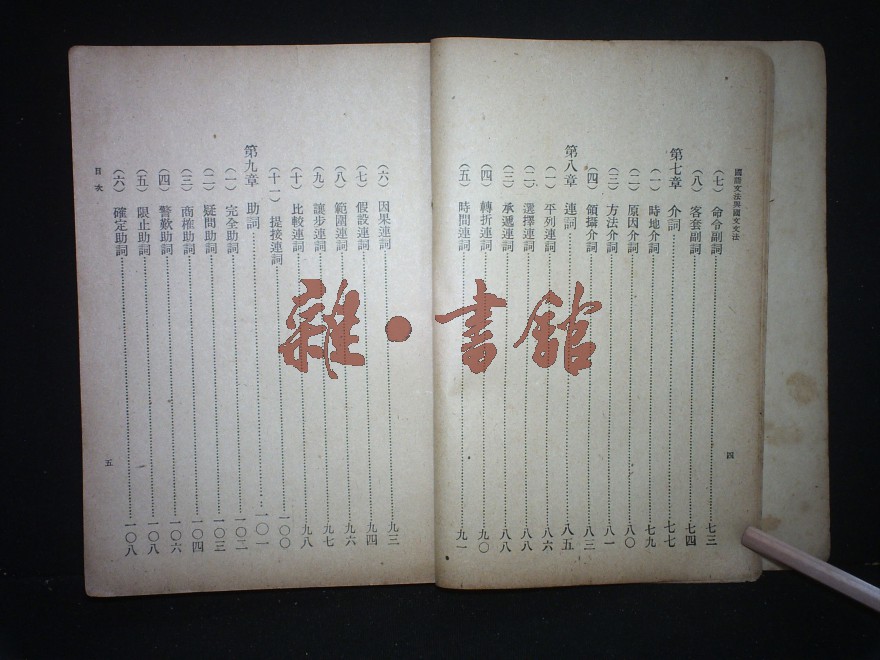 國語文法與國文文法
（七） 命令副詞 七三
（八） 客套副詞 七四
第七章 介詞 七七
（一） 時地介詞 七九
（二） 原因介詞 八〇
（三） 方法介詞 八一
（四） 領攝介詞 八三
第八章 連詞 八五
（一） 平列連詞 八六
（二） 選擇連詞 八八
（三） 承遞連詞 八八
（四） 轉折連詞 九〇
（五） 時間連詞 九一
四
（六） 因果連詞 九三
（七） 假設連詞 九四
（八） 範圍連詞 九六
（九） 讓步連詞 九七
（十） 比較連詞 九八
（十一） 提接連詞 一〇〇
第九章 助詞 一〇一
（一） 完全助詞 一〇二
（二） 疑問助詞 一〇三
（三） 商榷助詞 一〇四
（四） 警歎助詞 一〇六
（五） 限止助詞 一〇八
（六） 確定助詞 一〇八
目次
五
雜·書館